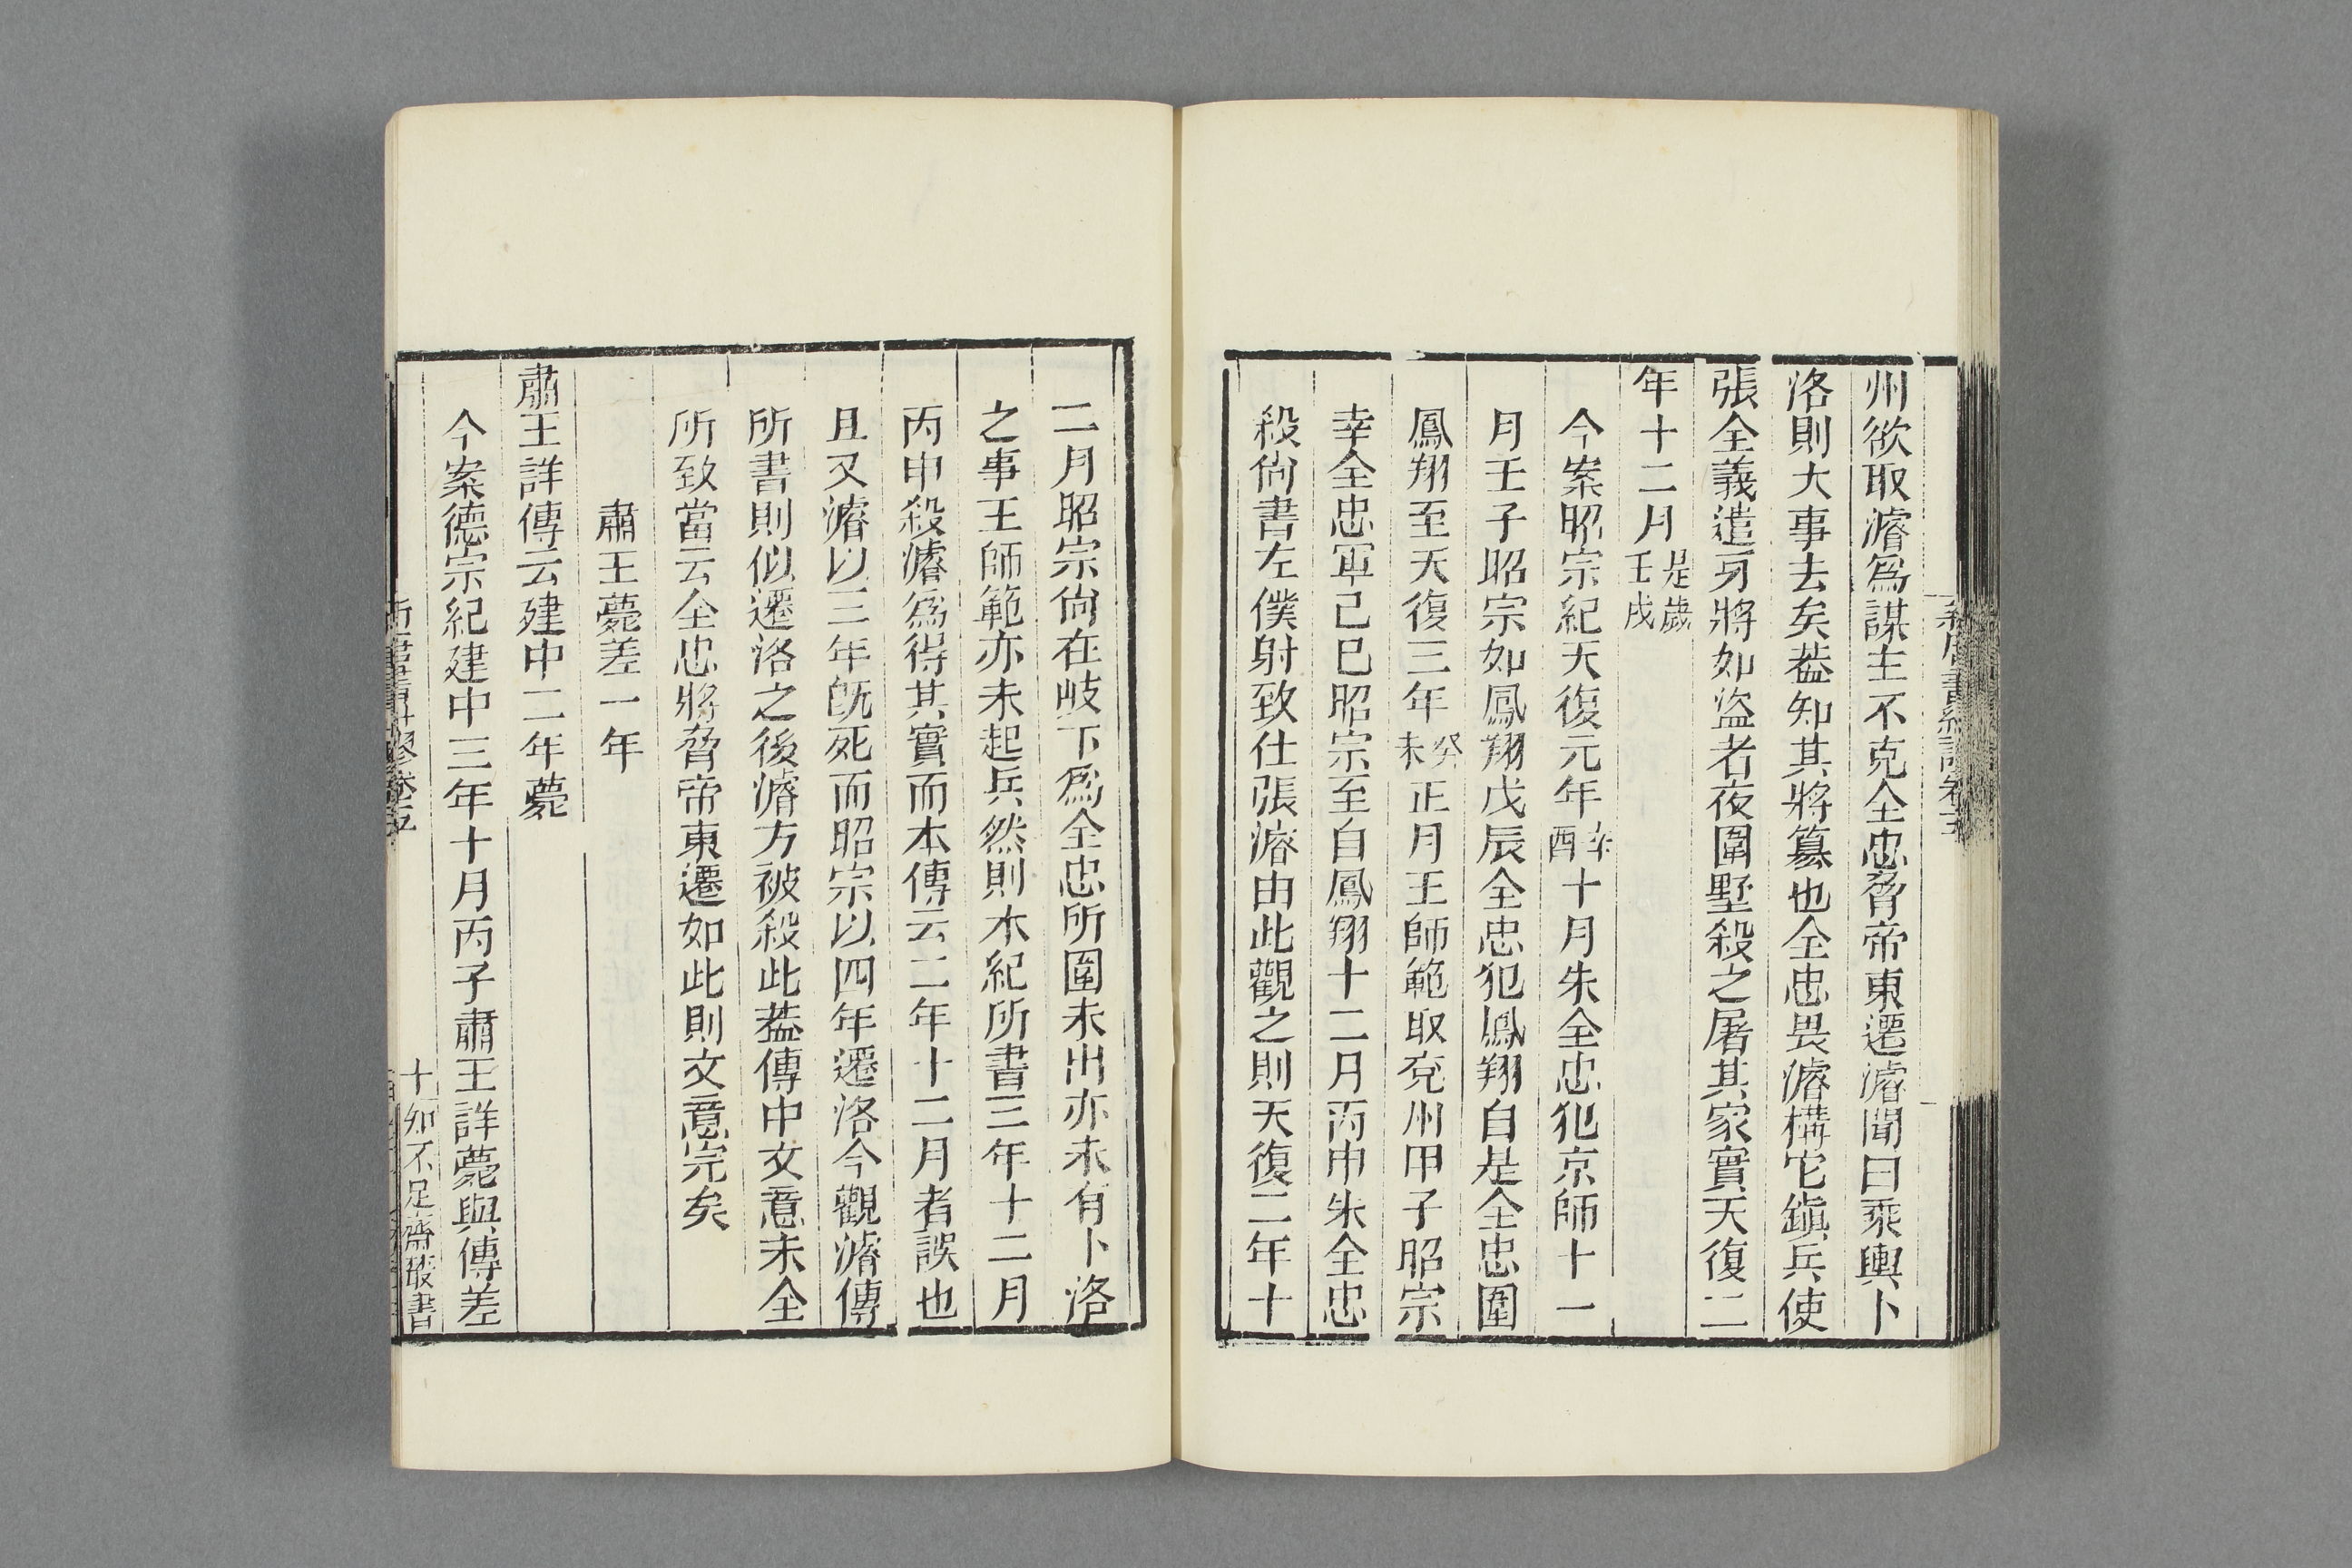 州欲取濬爲謀主不克全忠脅帝東遷濬聞曰乘輿卜
洛則大事去矣葢知其將篡也全忠畏濬構它鎭兵使
張全義遣牙將如盜者夜圍墅殺之屠其家實天復二
年十二月是歲壬戌
今案昭宗紀天復元年辛酉十月朱全忠犯京師十一
月壬子昭宗如鳳翔戊辰全忠犯鳳翔自是全忠圍
鳳翔至天復三年癸未正月王師範取兗州甲子昭宗
幸全忠軍己巳昭宗至自鳳翔十二月丙申朱全忠
殺尙書左僕射致仕張濬由此觀之則天復二年十
二月昭宗尙在岐下爲全忠所圍未出亦未有卜洛
之事王師範亦未起兵然則本紀所書三年十二月
丙申殺濬爲得其實而本傳云二年十二月者誤也
且又濬以三年旣死而昭宗以四年遷洛今觀濬傳
所書則似遷洛之後濬方被殺此葢傳中文意未全
所致當云全忠將脅帝東遷如此則文意完矣
肅王薨差一年
肅王詳傳云建中二年薨
今案德宗紀建中三年十月丙子肅王詳薨與傳差
十
知不足齋叢書